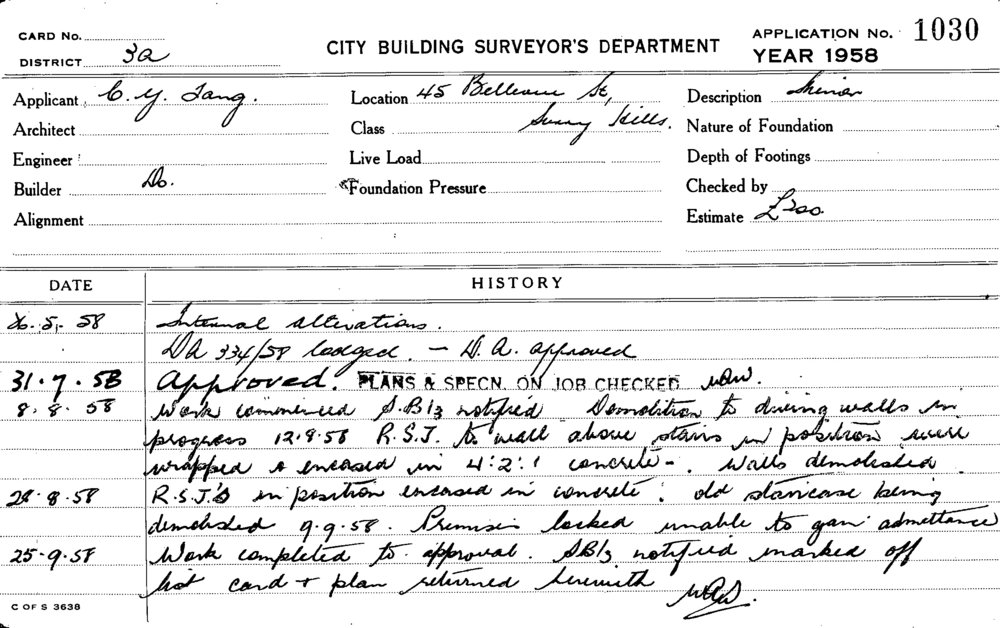 CARD No.
DISTRICT 3a
CITY BUILDING SURVEYOR'S DEPARTMENT
APPLICATION No. 1030
YEAR 1958
Applicant C. Y. Tang.
Location 45 Bellevue St,
Description
Architect
Class Surry Hills.
Nature of Foundation
Engineer
Live Load
Depth of Footings
Builder Do.
Foundation Pressure
Checked by
Alignment
Estimate £200
DATE
HISTORY
26.5.58 Internal alterations.
DA 334/58 lodged. - D.A. approved
31.7.58 Approved. PLANS & SPECN. ON JOB CHECKED
8.8.58 Work commenced S.B/3 notified Demolition to dining walls in
progress 12.8.58 R.S.J. to wall above stairs in position were
wrapped & encased in 4:2:1 concrete-. Walls demolished
28.8.58 R.S.J.'s in position encased in concrete: old staircase being
demolished 9.9.58. Premises locked unable to gain admittance
25.9.58 Work completed to approval. S.B/3 notified marked off
list card + plan returned herewith
C OF S 3638